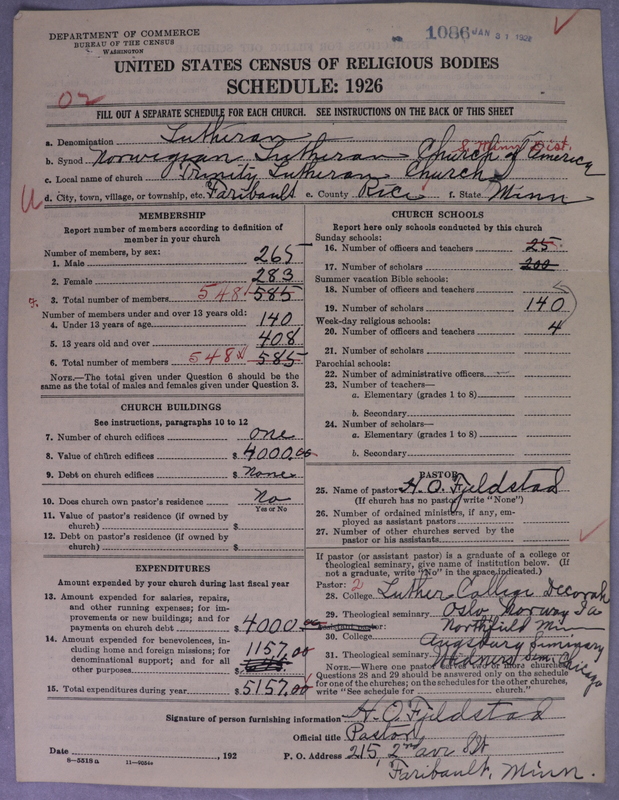 1086 JAN 31 1928
DEPARTMENT OF COMMERCE
BUREAU OF THE CENSUS
WASHINGTON
UNITED STATES CENSUS OF RELIGIOUS BODIES
SCHEDULE: 1926
FILL OUT A SEPARATE SCHEDULE FOR EACH CHURCH. SEE INSTRUCTIONS ON THE BACK OF THIS SHEET
a. Denomination Lutheran
S. Minn Dist.
b. Synod Norwegian Lutheran Church of America
c. Local name of church Trinity Lutheran Church
d. City, town, village, or township, etc. Faribault e. County Rice f. State Minn
MEMBERSHIP
Report number of members according to definition of
member in your church
Number of members, by sex:
1. Male 265
2. Female 283
3. Total number of members 548 585
Number of members under and over 13 years old:
4. Under 13 years of age 140
5. 13 years old and over 408
6. Total number of members 548 585
NOTE.—The total given under Question 6 should be
same as the total of males and females given under Question 3.
CHURCH BUILDINGS
See instructions, paragraphs 10 to 12
7. Number of church edifices one
8. Value of church edifices $ 4000.00
9. Debt on church edifices $ None
10. Does church own pastor's residence No
Yes or No
11. Value of pastor's residence (if owned by
church) $
12. Debt on pastor's residence (if owned by
church) $
EXPENDITURES
Amount expended by your church during last fiscal year
13. Amount expended for salaries, repairs,
and other running expenses; for im-
provements or new buildings; and for
payments on church debt $ 4000.00
14. Amount expended for benevolences, in-
cluding home and foreign missions; for
denominational support; and for all
other purposes $ 1157.00
15. Total expenditures during year $ 5157.00
CHURCH SCHOOLS
Report here only schools conducted by this church
Sunday schools:
16. Number of officers and teachers 25
17. Number of scholars 200
Summer vacation Bible schools:
18. Number of officers and teachers
19. Number of scholars 140
Week-day religious schools:
20. Number of officers and teachers 4
21. Number of scholars
Parochial schools:
22. Number of administrative officers
23. Number of teachers—
a. Elementary (grades 1 to 8)
b. Secondary
24. Number of scholars—
a. Elementary (grades 1 to 8)
b. Secondary
PASTOR
25. Name of pastor H. O. Fjeldstad
(If church has no pastor write "None")
26. Number of ordained ministers, if any, em-
ployed as assistant pastors
27. Number of other churches served by the
pastor or his assistants
If pastor (or assistant pastor) is a graduate of a college or
theological seminary, give name of institution below. (If
not a graduate, write "No" in the space indicated.)
Pastor: 2
28. College Luther College Decorah
29. Theological seminary Oslo, Norway Ia
Northfield Mi
30. College Augsburg Siminary
31. Theological seminary Sem. Chicago
NOTE.—Where one pastor served two or more churches
Questions 28 and 29 should be answered only on the schedule
for one of the churches; on the schedules for the other churches,
write "See schedule for church."
Signature of person furnishing information H. O. Fjeldstad
Official title Pastor
Date , 192 P. O. Address 215, 2nd ave
8—5318 a 11—9054
Faribault, Minn.